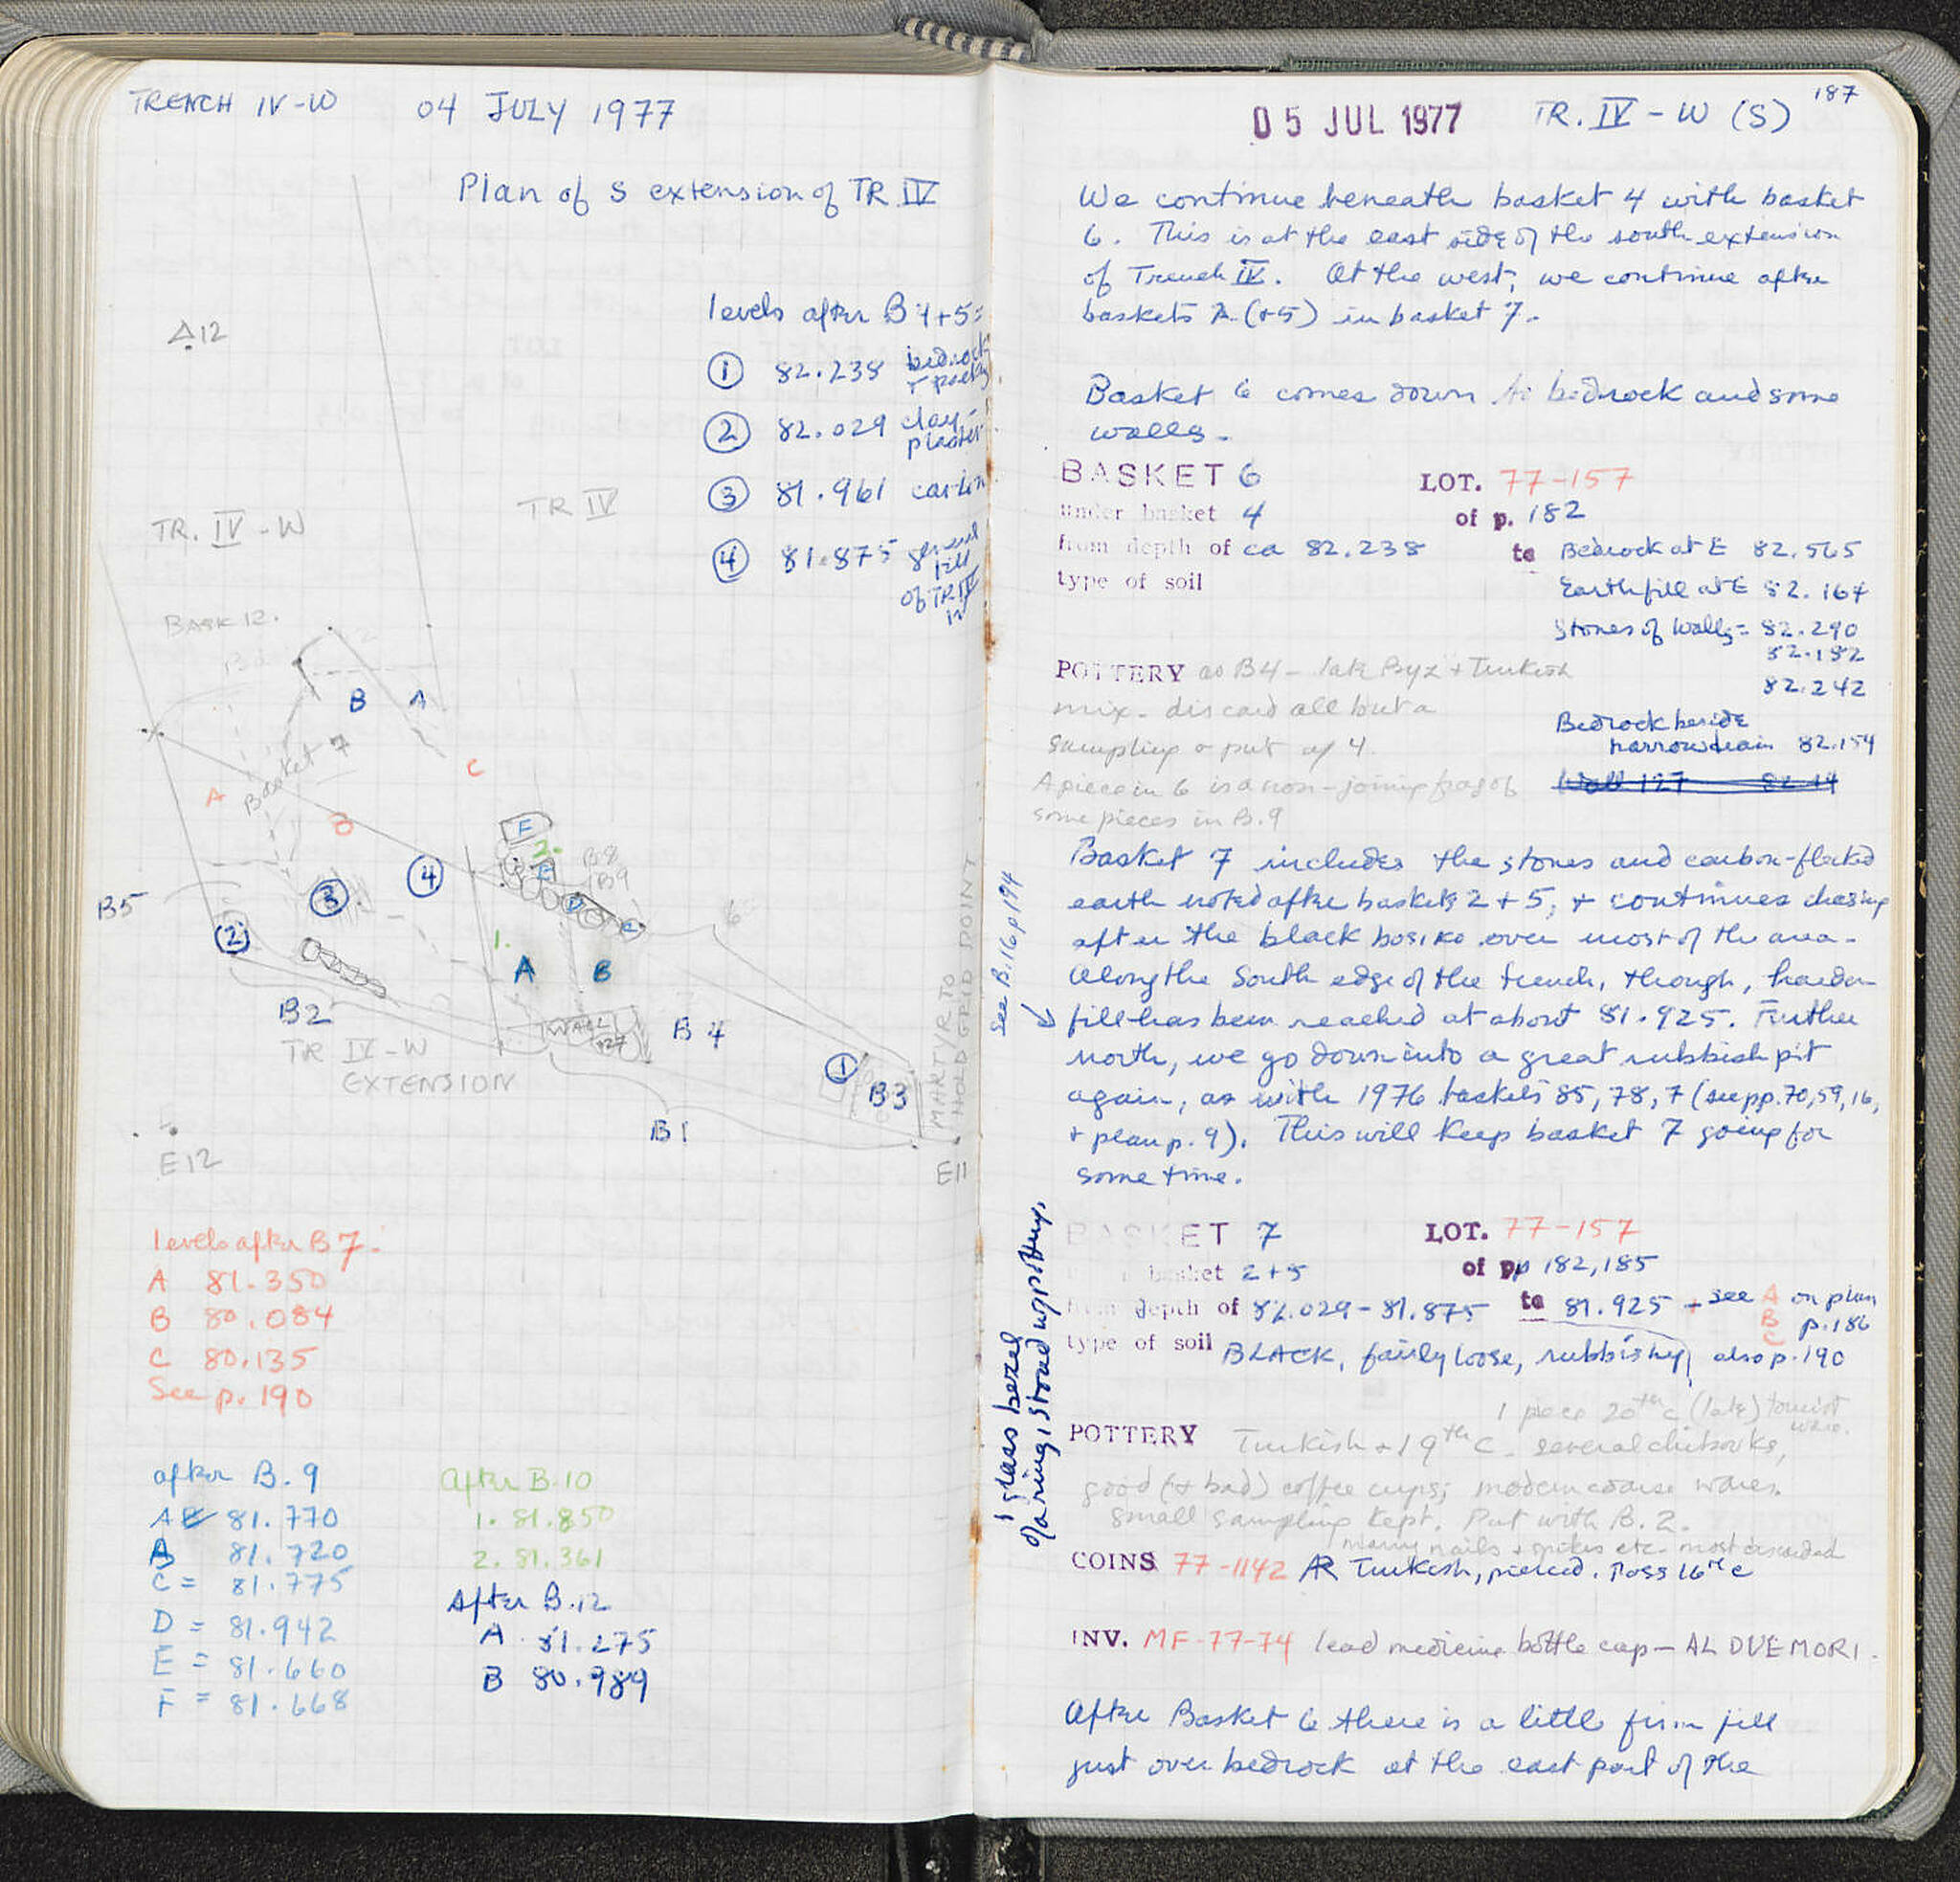 TRENCH IV-W 04 JULY 1977
Plan of S extension of TR IV
levels after B 4+5 =
① 82.238 bedrock
② 82.029 clay-
plaster
③ 81.961
④ 81.875 general
fill
of TR IV
Δ12
TR. IV-W
TR IV
BASK 12.
B A
C
A
Basket 7
B
F
2.
E
B.8
B9
D
C
B5
③
④
②
6
1.
A B
B2
WALL
127
B4
TR IV-W
EXTENSION
①
B3
B1
MARTYR TO
HOLD GRID POINT
E12
E11
levels after B7.
A 81.350
B 80.084
C 80.135
See p. 190
after B.9
A 81.770
B 81.720
C = 81.775
D = 81.942
E = 81.660
F = 81.668
After B.10
1. 81.850
2. 81.361
After B.12
A 81.275
B 80.989
187
05 JUL 1977 TR. IV-W (S)
We continue beneath basket 4 with basket
6. This is at the east side of the south extension
of Trench IV. At the west, we continue after
baskets 2 (+5) in basket 7.
Basket 6 comes down to bedrock and some
walls.
BASKET 6 LOT. 77-157
under basket 4 of p. 182
from depth of ca 82.238 to Bedrock at E 82.565
type of soil Earth fill at E 82.164
Stones of walls = 82.290
82.182
82.242
POTTERY as B4 - late Byz + Turkish
mix - discard all but a
sampling + put w/ 4.
A piece in 6 is a non-joining frag of
some pieces in B.9
Bedrock beside
narrow drain 82.154
Wall 127 82.14
Basket 7 includes the stones and carbon-flecked
earth noted after baskets 2+5, + continues chasing
after the black bosiko over most of the area.
Along the south edge of the trench, though, harder
fill has been reached at about 81.925. Further
north, we go down into a great rubbish pit
again, as with 1976 baskets 85, 78, 7 (see pp. 70, 59, 16,
+ plan p. 9). This will keep basket 7 going for
some time.
See B.16 p 194
BASKET 7 LOT. 77-157
basket 2+5 of pp 182, 185
from depth of 82.029 - 81.875 to 81.925 - see A B C on plan
p. 186
type of soil BLACK, fairly loose, rubbishy, also p. 190
1 glass bezel
of a ring, stored w/ pottery.
1 piece 20th c (late) tourist
ware.
POTTERY Turkish + 19th c. several chibouks,
good (+ bad) coffee cups; modern coarse wares.
small sampling kept. Put with B.2.
many nails + spikes etc - most discarded
COINS 77-1142 AR Turkish, pierced. Poss 16th c
INV. MF-77-74 lead medicine bottle cap - AL DUE MORI.
After Basket 6 there is a little firm fill
just over bedrock at the east part of the